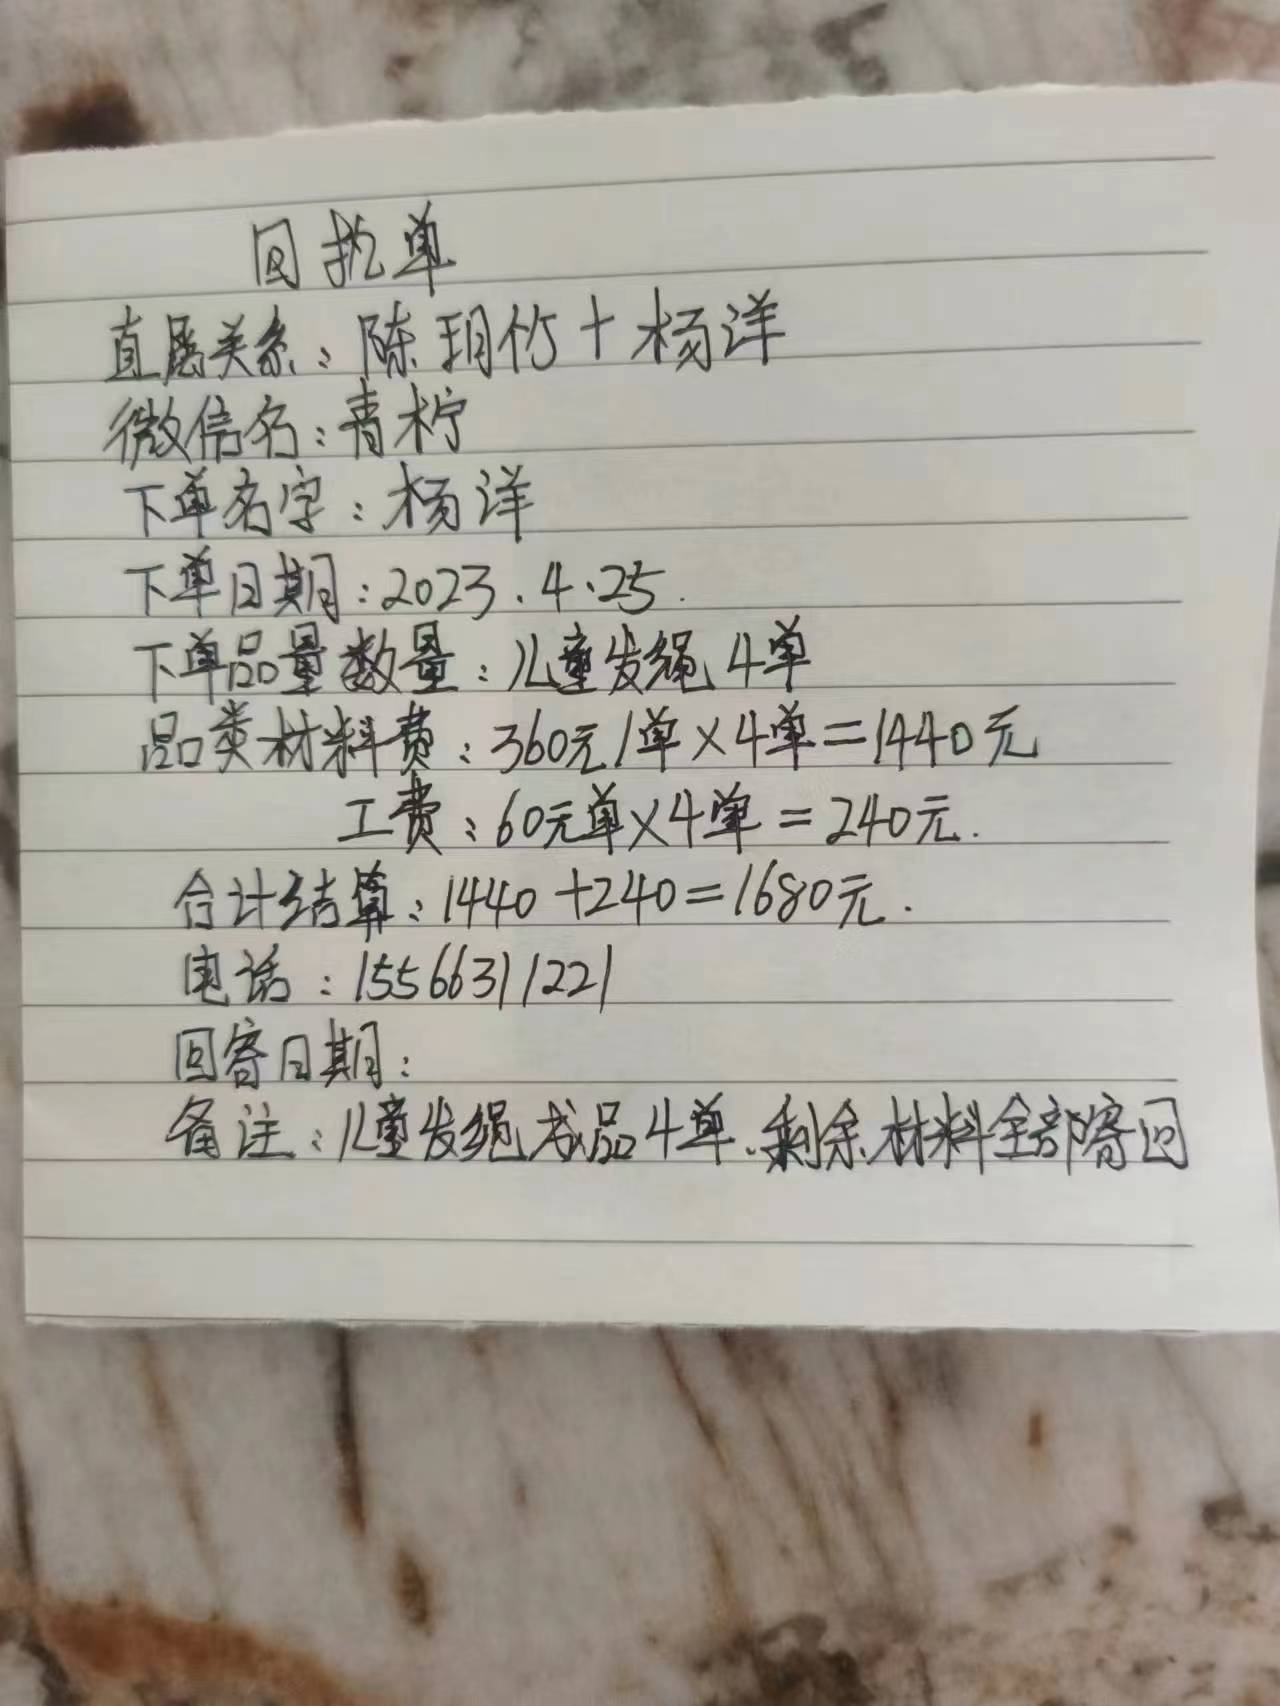 回执单
直属关系：陈玥竹+杨洋
微信名：青柠
下单名字：杨洋
下单日期：2023.4.25.
下单品量数量：儿童发绳4单
品类材料费：360元/单×4单=1440元
工费：60元单×4单=240元.
合计结算：1440+240=1680元.
电话：15566311221
回寄日期：
备注：儿童发绳成品4单.剩余材料全部寄回